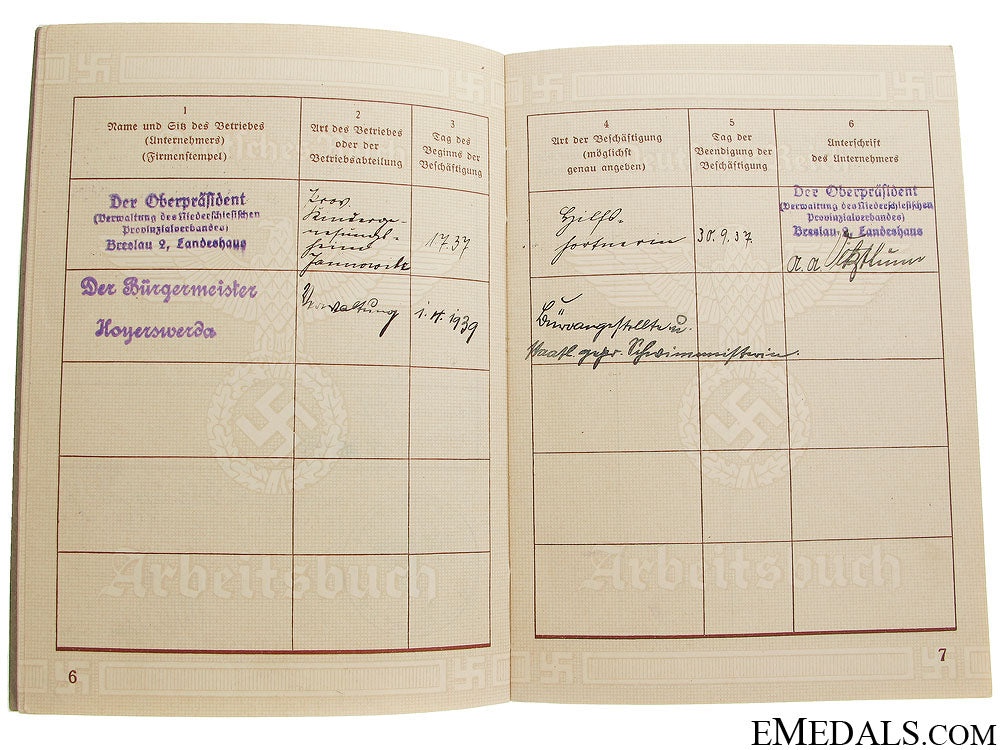 1
Name und Sitz des Betriebes
(Unternehmers)
(Firmenstempel)
2
Art des Betriebes
oder der
Betriebsabteilung
3
Tag des
Beginns der
Beschäftigung
4
Art der Beschäftigung
(möglichst
genau angeben)
5
Tag der
Beendigung der
Beschäftigung
6
Unterschrift
des Unternehmers
Der Oberpräsident
(Verwaltung des Niederschlesischen
Provinzialverbandes)
Breslau 2, Landeshaus
Prov.
Kinderge-
nesungs-
heim
Jannowitz
1.7.37
Hilfs-
gärtnerin
30.9.37.
Der Oberpräsident
(Verwaltung des Niederschlesischen
Provinzialverbandes)
Breslau 2, Landeshaus
Der Bürgermeister
Hoyerswerda
Verwaltung
1. 4. 1939
Büroangestellte u.
staatl. gepr. Schwimmeisterin.
Arbeitsbuch
Arbeitsbuch
6
7
EMEDALS.COM